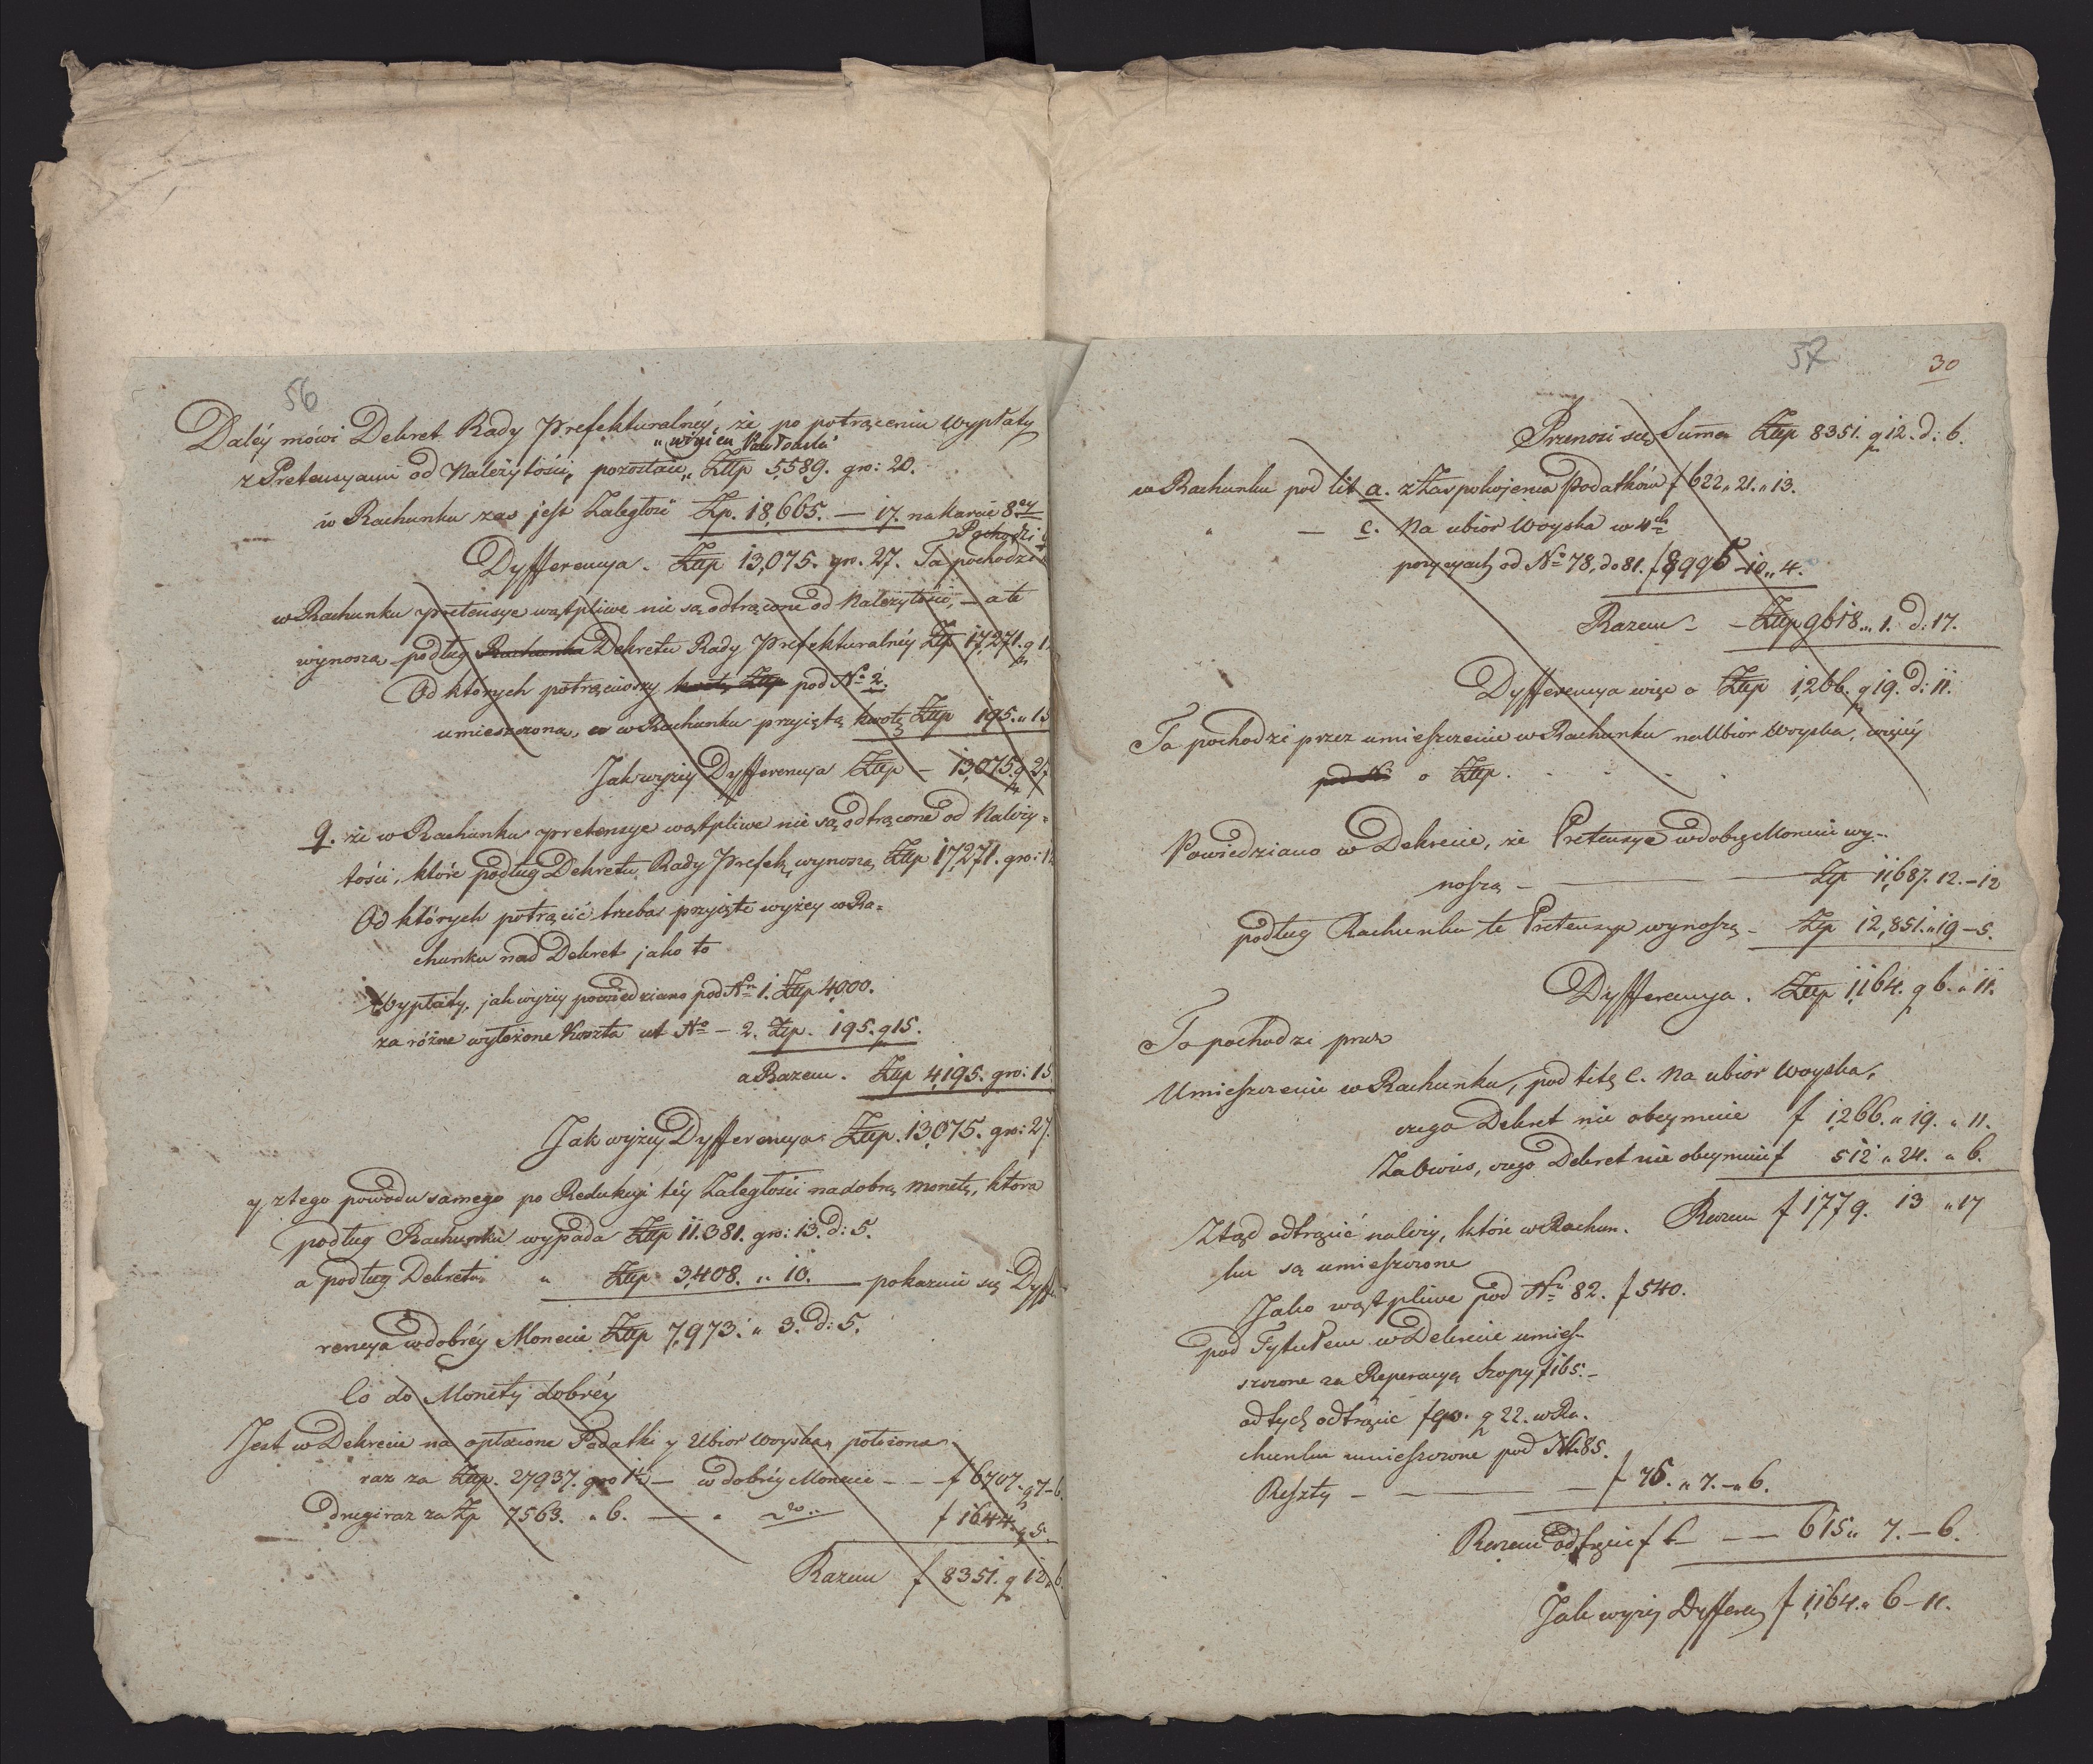 56
Daléy mówi Dekret Rady Prefekturalnéy, że po potrąceniu wypłaty
z Pretensyami od Należytości, pozostaie „ Złp 5589. gro: 20.
w Rachunku zas jest Zaległość Zp. 18,665. — 17. na karcie 8ey
Pochodzi
Dyfferencya. Złp 13,075. gr. 27. Ta pochodzi
w Rachunku pretensye wątpliwe nie są odtrącone od Należytości, — a te
wynoszą podług Rachunku Dekretu Rady Prefekturalnéy Złp 17,271. g 1
Od których potrąciwszy kwotę Złp pod No 2.
umieszczoną, w Rachunku przyiętą kwotę Złp 195. „ 15
Jak wyżey Dyfferencya Złp — 13,075. g 27
q. że w Rachunku pretensye wątpliwe nie są odtrącone od Należy=
tości, które podług Dekretu Rady Prefek, wynoszą Złp 17,271. gro: 1
Od których potrącić trzeba przyięte wyżey w Ra=
chunku nad Dekret jako to
Wypłaty, jak wyżey powiedziano pod No 1. Złp 4000.
za różne wyłożone Koszta ut No — 2. Złp. 195. g 15.
a Razem. Złp 4,195. gro: 15
Jak wyżey Dyfferencya Złp. 13,075. gro: 27.
y z tego powodu samego po Redukcyi téy Zaległości na dobrą monetę, ktora
podług Rachunku wypada Złp 11.381. gro: 13. d: 5.
a podług Dekretu „ Złp 3,408. „ 10. — pokazuie się Dyffe
rencya w dobréy Monecie Złp 7,973. „ 3. d: 5.
Co do Monety dobréy
Jest w Dekrecie na opłacone Podatki y Ubior woyska, położona
raz za Złp. 27937. gro — w dobréy Monecie — — f 6707. g 7 — 6.
drugi raz za Zp 7563. „ 6. — „ do f 1644. g 5.
Razem f 8351. g 12 „ 6.
57
30
Przenosi się Suma Złp 8351. g 12. d: 6.
w Rachunku pod lit a. z Zaspokojenia Podatków f 622 „ 21. „ 13.
„ — c. Na ubior woyska w 4ch
pozycyach od No 78, do 81. f 8995 — 10 „ 4.
Razem — — Złp 9618 „ 1. d: 17.
Dyfferencya więc o Złp 1,266. g 19. d: 11.
Ta pochodzi przez umieszczenie w Rachunku na Ubior woyska, więcéy
pod No o Złp.
Powiedziano w Dekrecie, że Pretensye w dobrey Monecie wy-
noszą — — Zp 11,687. 12. — 12
podług Rachunku te Pretensye wynoszą — Zp 12,851. „ 19 — 5.
Dyfferencya. Złp 1,164. g 6. „ 11.
Ta pochodzi przez
Umieszczenie w Rachunku, pod litą C. na ubior woyska,
czego Dekret nie obeymuie f 1,266. „ 19. „ 11.
Za czego Dekret nie obeymuie f 512 „ 24. „ 6.
Razem f 1779. 13 „ 17
Ztąd odtrącić należy, które w Rachun-
ku są umieszczone
Jako wątpliwe pod No 82. f 540.
pod Tytułem w Dekrecie umiesz-
czone za Reperacyą Szopy f 165. —
od tych odtrącić f 90. g 22. w Ra-
chunku umieszczone pod No 85.
Reszty — — — f 75. „ 7. — „ 6.
Razem odtrącić f — — 615 „ 7. — 6.
Jak wyżey Dyfferen f 1,164. „ 6 — 11.